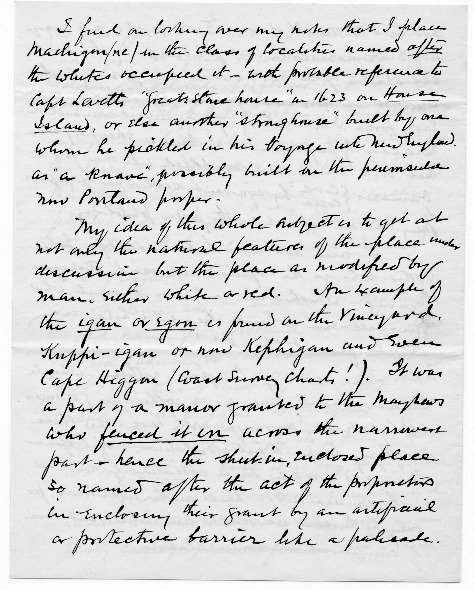 I find on looking over my notes that I place
Machigon(ne) in the class of localities named after
the whites occupied it – with probable reference to
Capt Levetts "great stone house" in 1623 on House
Island, or else another "strong house" built by one
whom he pickled in his Voyage into New England
as "a knave", possibly built on the peninsula
now Portland proper.
My idea of this whole subject is to get at
not only the natural features of the place under
discussion but the place as modified by
man, either white or red. An example of
the igan or egon is found on the Vineyard.
Kuppi-igan or now Kephigan and even
Cape Higgon (Coast Survey Charts!). It was
a part of a manor granted to the Mayhews
who fenced it in across the narrowest
part – hence the shut-in, enclosed place
so named after the act of the proprietors
in enclosing their grant by an artificial
or protective barrier like a palisade.